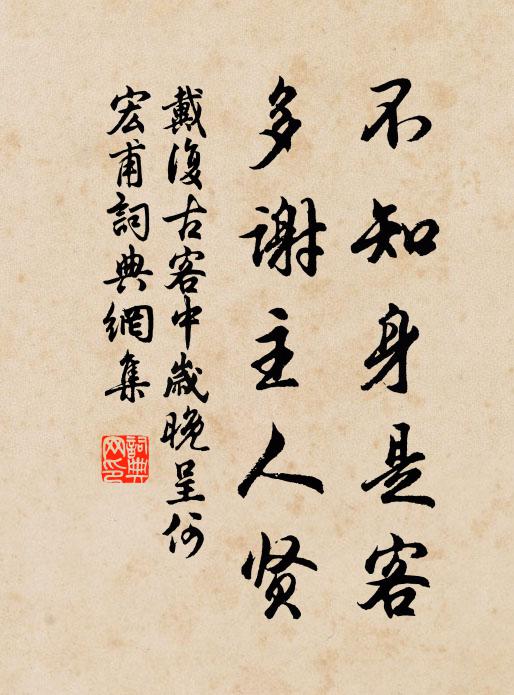 不知身是客
多謝主人贤
戴復古客中歲晚呈何
宏甫詞典網集
詞典
网印